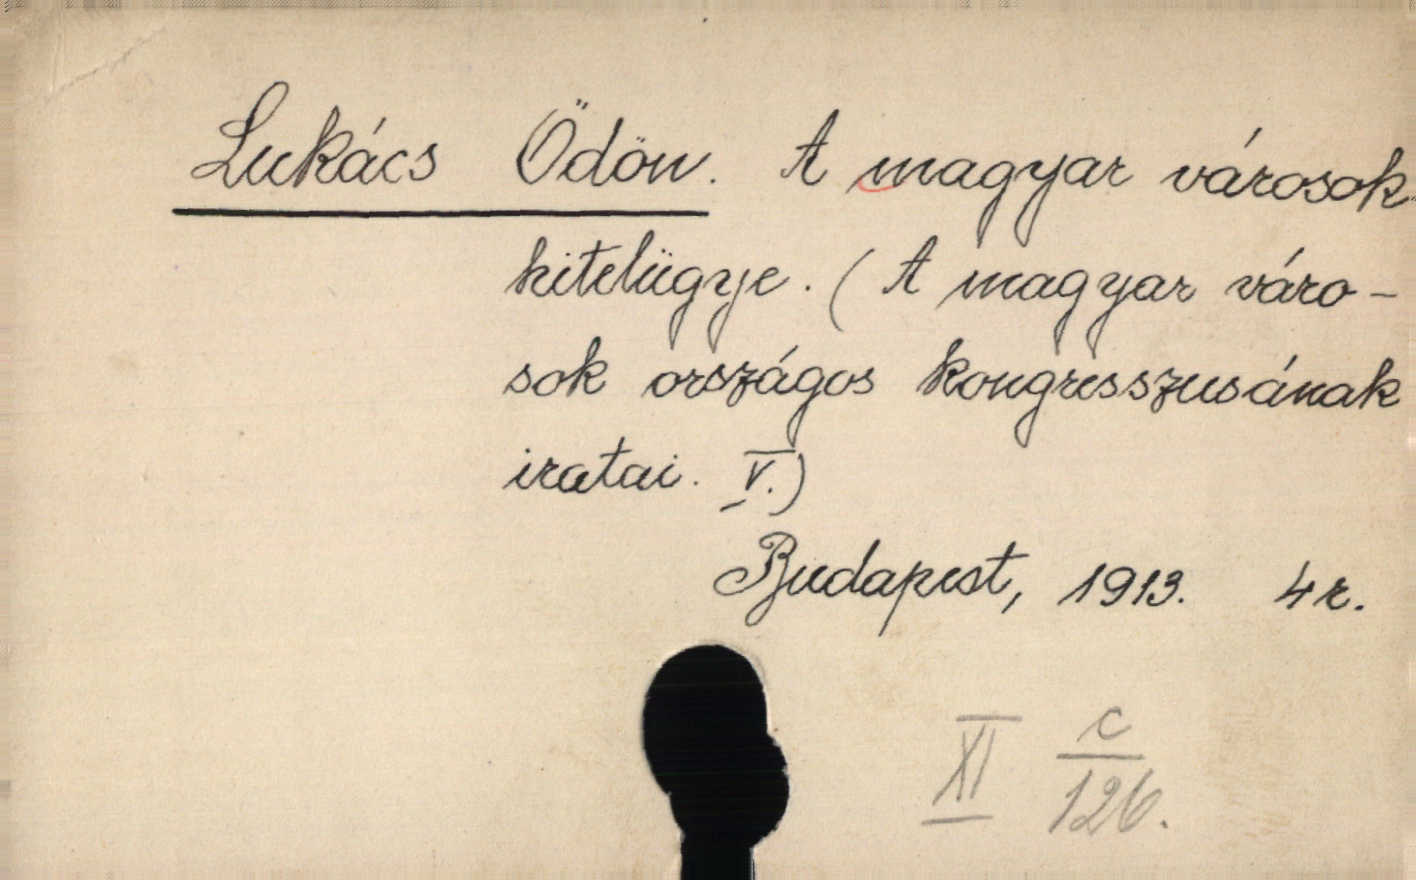 Lukács Ödön. A magyar városok
hitelügye. (A magyar váro-
sok országos kongresszusának
iratai. V.)
Budapest, 1913. 4r.
XI c/126.